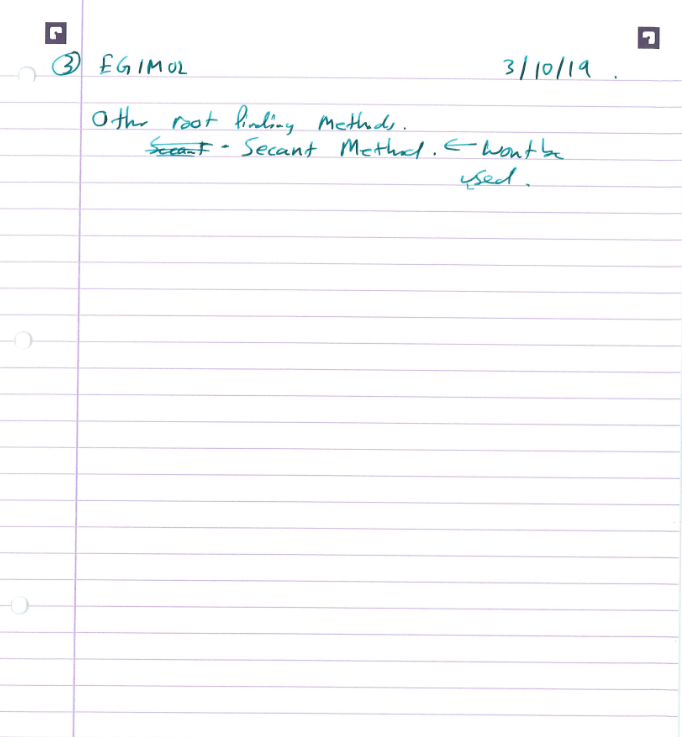 ③ EGIM02 3/10/19 .
Other root finding methods.
Secant - Secant Method. ← Wont be
used.